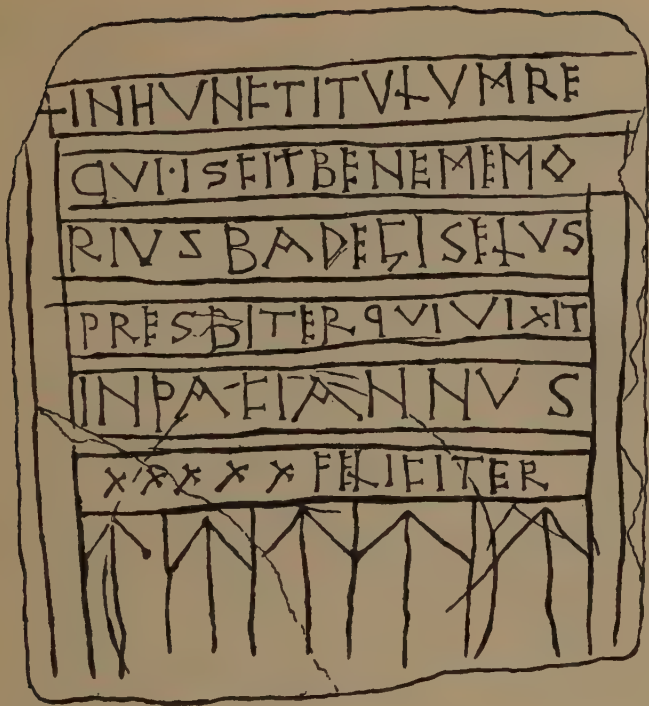 +INHVNCTITVLVMRE
QVI·ISCITBENEMEMO
RIVSBADEGISELVS
PRESBITERQVIVIXIT
INPACIANNVS
XXXXXFELICITER